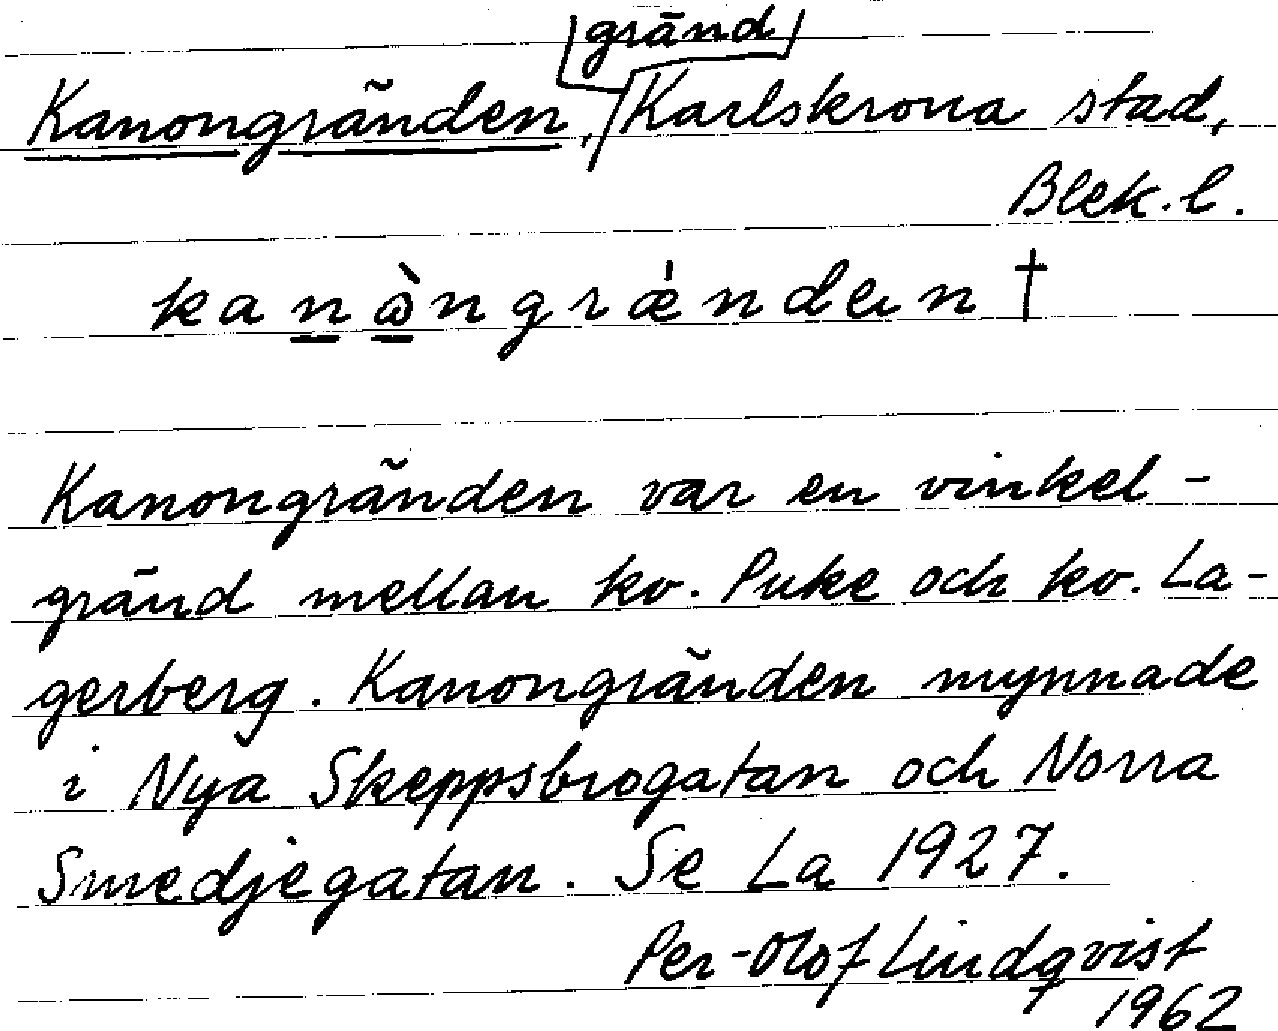 gränd
Kanongränden, Karlskrona stad,
Blek. l.
kanὼngrǽnden †
Kanongränden var en vinkel-
gränd mellan kv. Puke och kv. La-
gerberg. Kanongränden mynnade
i Nya Skeppsbrogatan och Norra
Smedjegatan. Se La 1927.
Per-Olof Lindqvist
1962